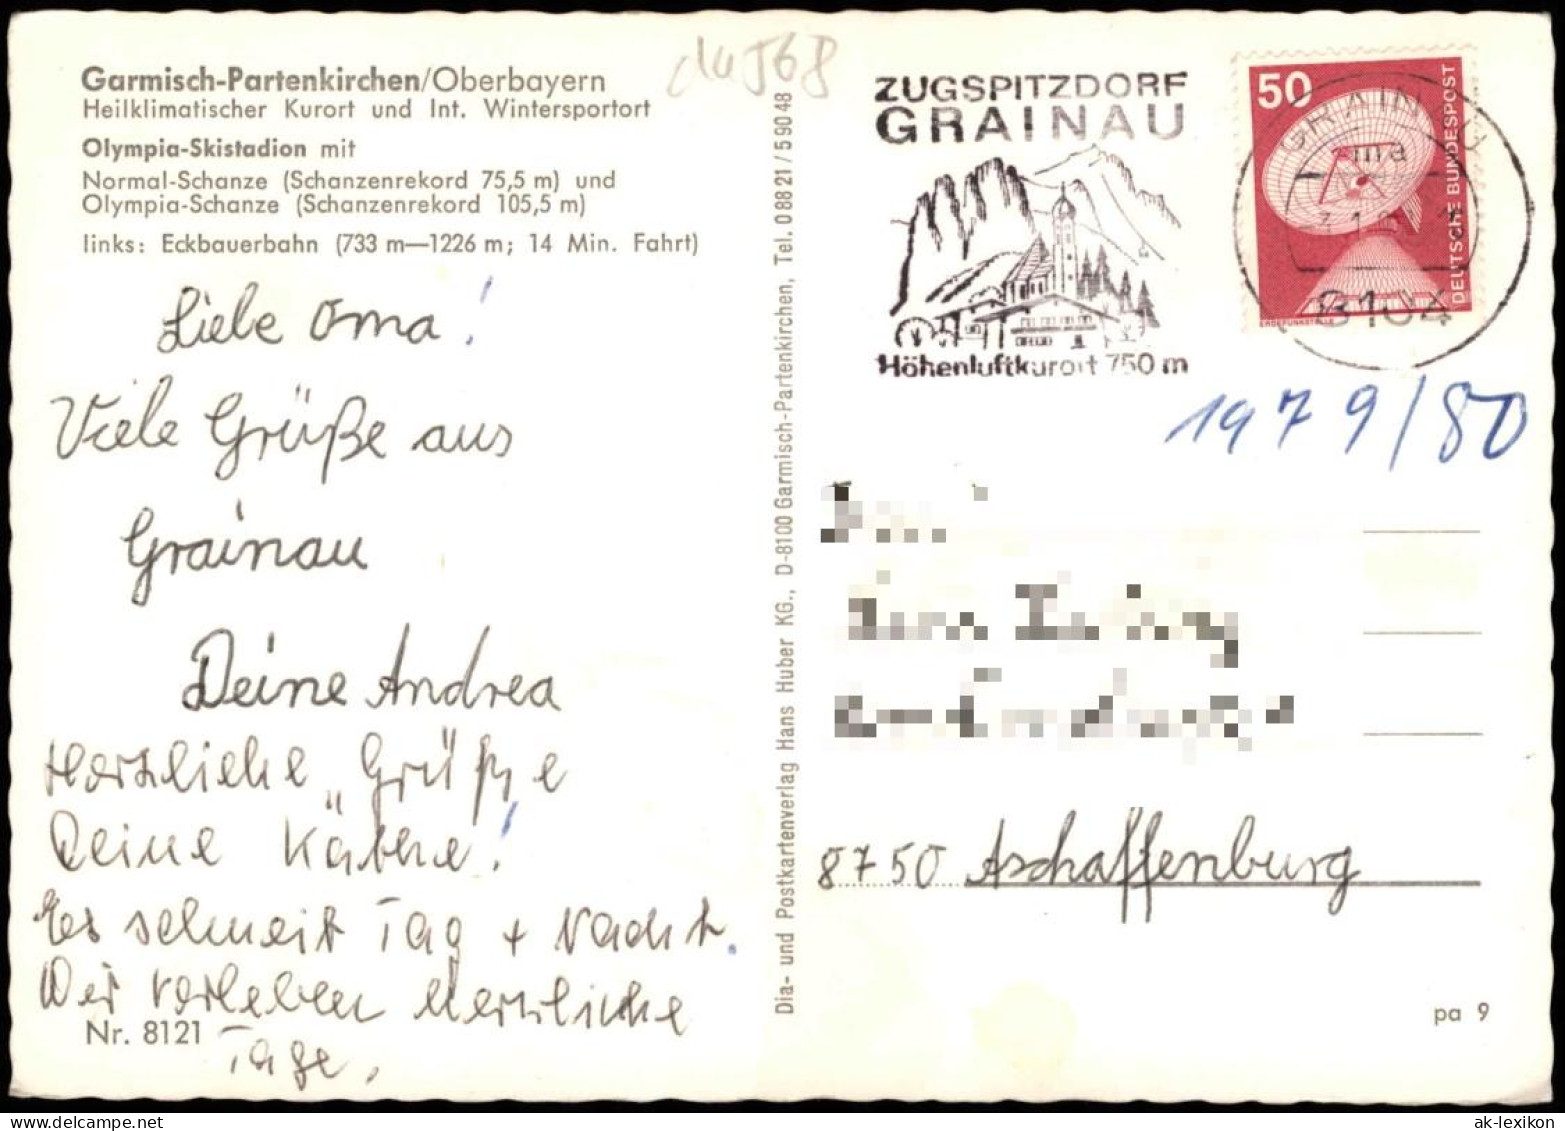 Garmisch-Partenkirchen/Oberbayern
Heilklimatischer Kurort und Int. Wintersportort
Olympia-Skistadion mit
Normal-Schanze (Schanzenrekord 75,5 m) und
Olympia-Schanze (Schanzenrekord 105,5 m)
links: Eckbauerbahn (733 m—1226 m; 14 Min. Fahrt)
Liebe Oma!
Viele Grüße aus
Grainau
Deine Andrea
Herzliche Grüße
Deine Käthe!
Es schneit Tag + Nacht.
Wir verleben herzliche
Tage.
Nr. 8121
Dia- und Postkartenverlag Hans Huber KG., D-8100 Garmisch-Partenkirchen, Tel. 08821/59048
ZUGSPITZDORF
GRAINAU
Höhenluftkurort 750 m
50
DEUTSCHE BUNDESPOST
ERDEFUNKSTELLE
GRAINAU
ma
8104
1979/80
8750 Aschaffenburg
pa 9
ak-lexikon